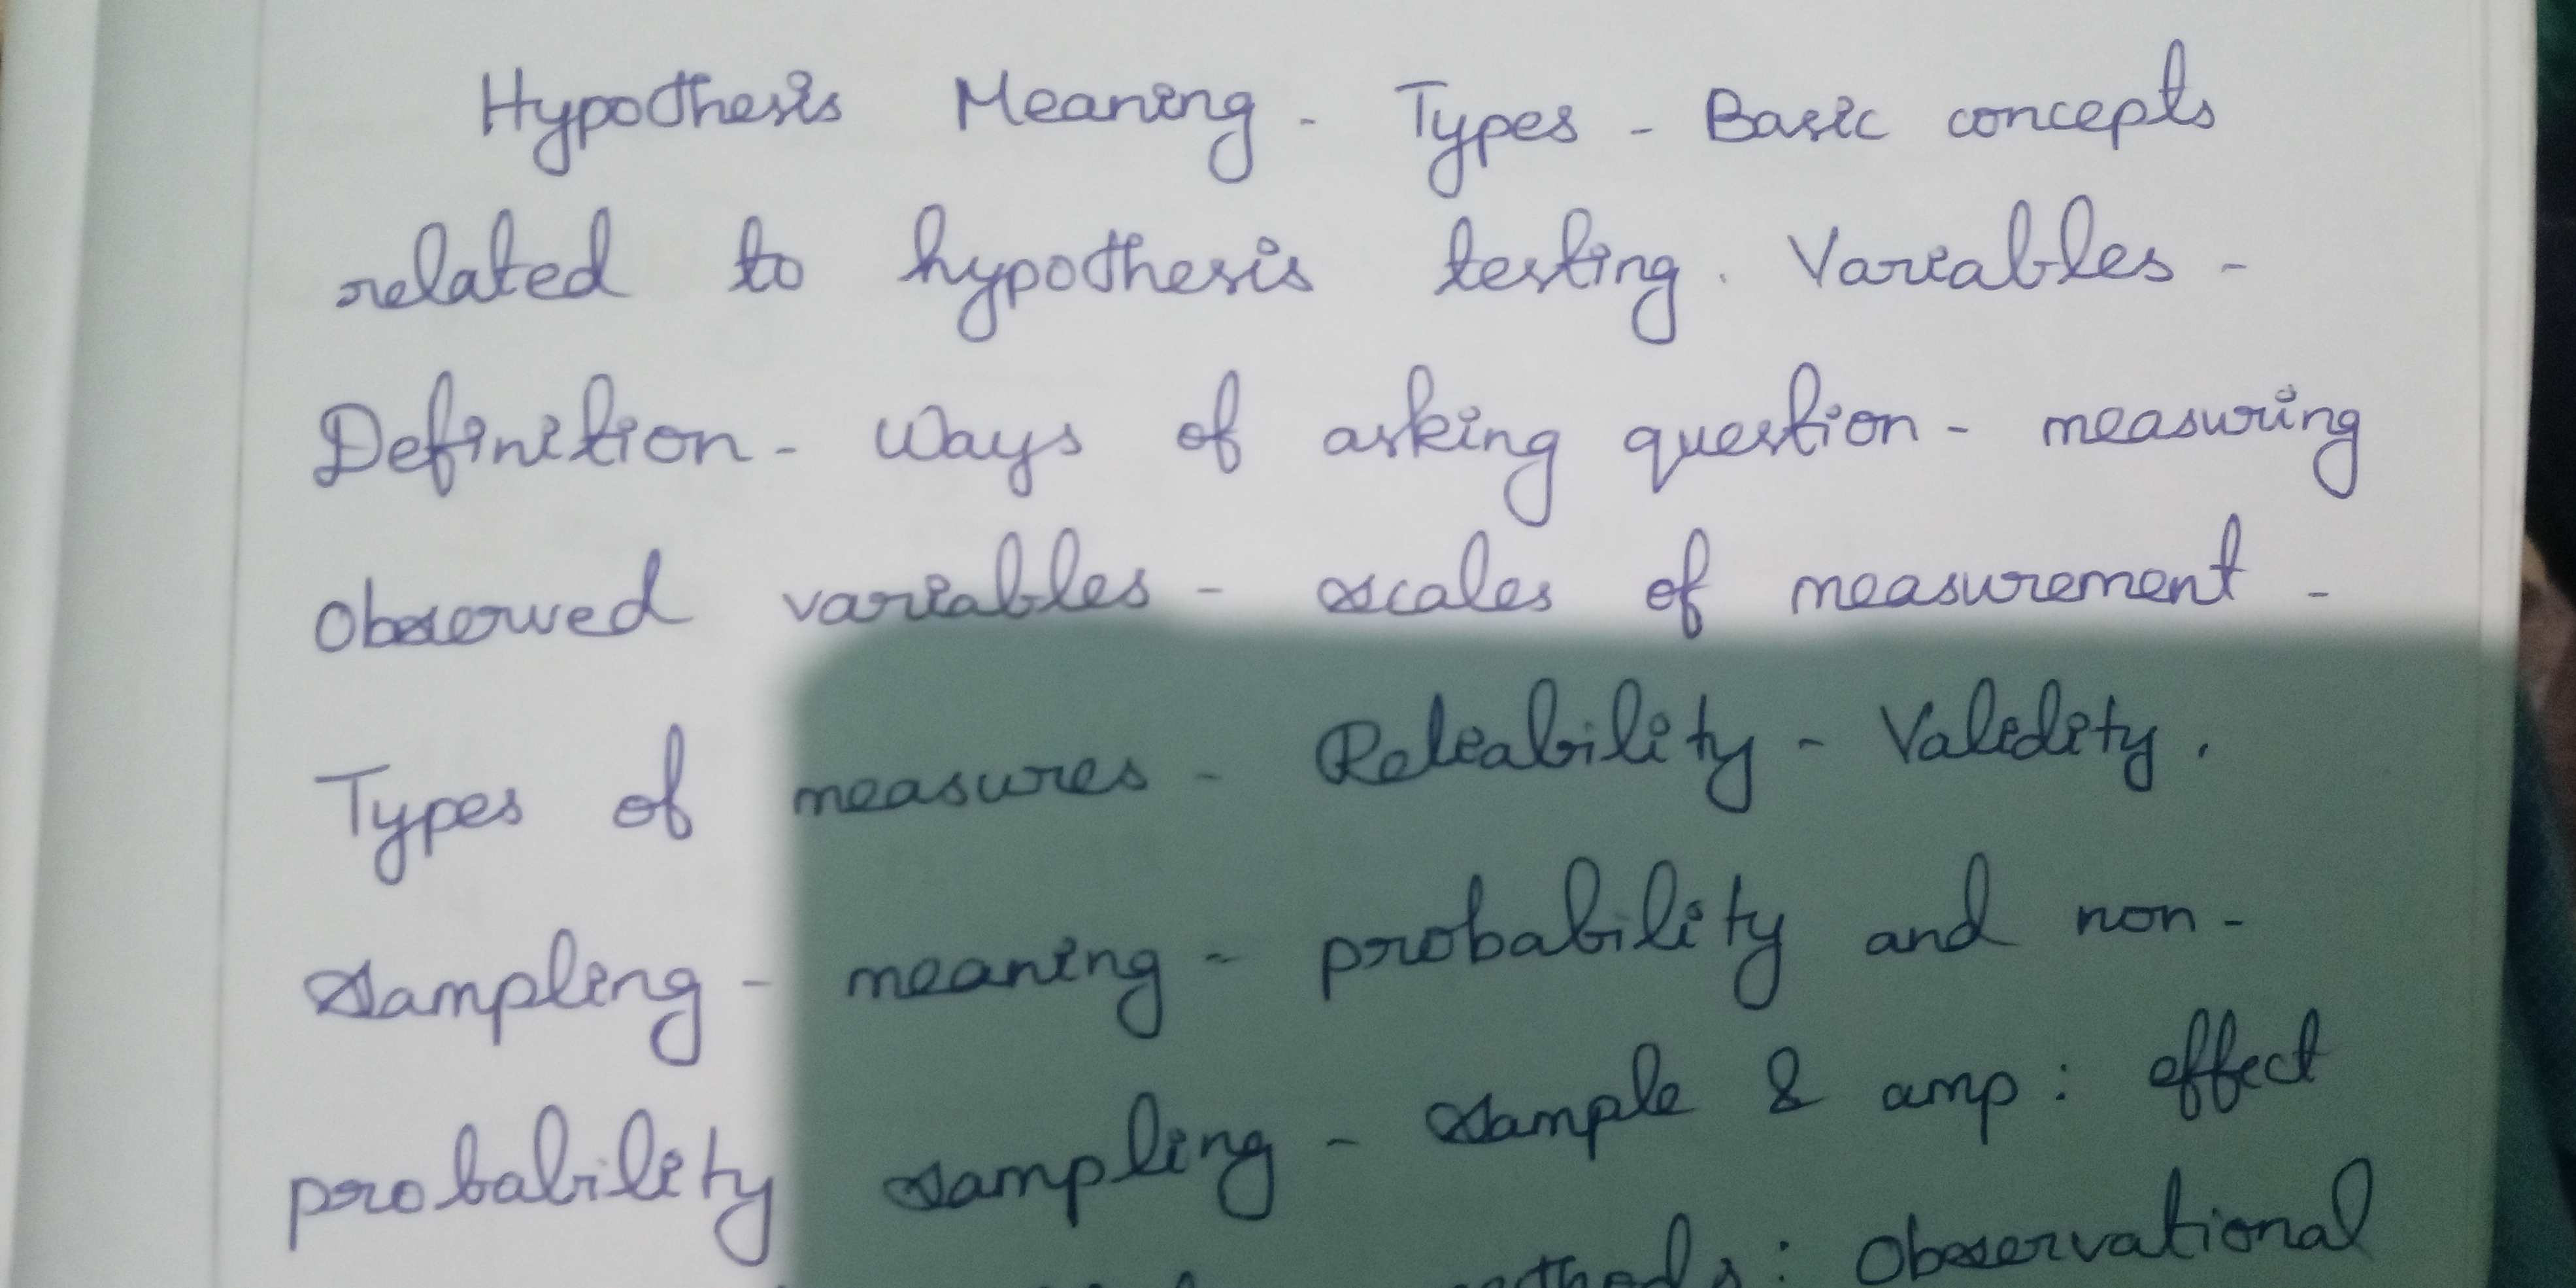 Hypothesis Meaning - Types - Basic concepts
related to hypothesis testing. Variables -
Definition - Ways of asking question - measuring
Observed variables - scales of measurement -
Types of measures - Reliability - Validity.
Sampling - meaning - probability and non-
probability sampling - sample & amp: effect
: Observational